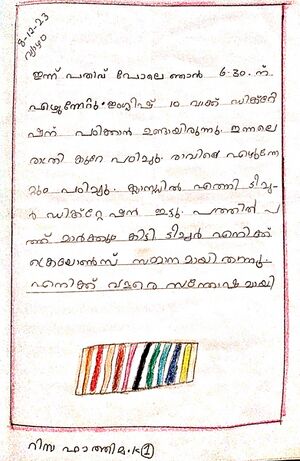 8-12-23
വ്യാഴം
ഇന്ന് പതിവ് പോലെ ഞാൻ 6.30. ന്
എഴുന്നേറ്റു. ഇംഗ്ലീഷ് 10 വാക്ക് ഡിക്റ്റേ
ഷന് പഠിക്കാൻ ഉണ്ടായിരുന്നു. ഇന്നലെ
രാത്രി കുറേ പഠിച്ചു. രാവിലെ എഴുന്നേ
റ്റും പഠിച്ചു. ക്ലാസ്സിൽ എത്തി ടീച്ച
ർ ഡിക്റ്റേഷൻ ഇട്ടു. പത്തിൽ പ
ത്ത് മാർക്കും കിട്ടി ടീച്ചർ എനിക്ക്
ക്രയോൺസ് സമ്മാനമായി തന്നു.
എനിക്ക് വളരെ സന്തോഷമായി
റിസ ഫാത്തിമ.k ①